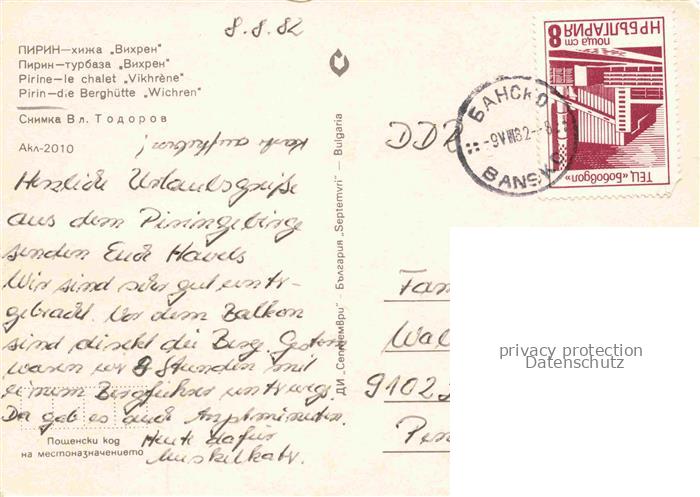 8.8.82
ПИРИН—хижа „Вихрен"
Пирин—турбаза „Вихрен"
Pirine—le chalet „Vikhrène"
Pirin—die Berghütte „Wichren"
Снимка Вл. Тодоров
Акл-2010
Karte aufheben!
Herzliche Urlaubsgrüße
aus dem Piringebirge
senden Euch Havels
Wir sind sehr gut unter-
gebracht. Vor dem Balkon
sind direkt die Berg. Gestern
waren wir 8 Stunden mit
einem Bergführer unterwegs.
Da gab es auch Angstminuten.
Heute dafür
Muskelkatr.
Пощенски код
на местоназначението
ДИ „Септември" — България „Septemvri" — Bulgaria
DDR
БАНСКО
-9.VIII.82.-8
BANSKO
НР БЪЛГАРИЯ
поща ст 8
ТЕЦ „Бобовдол"
Fam
Wal
9102
Pen
privacy protection
Datenschutz